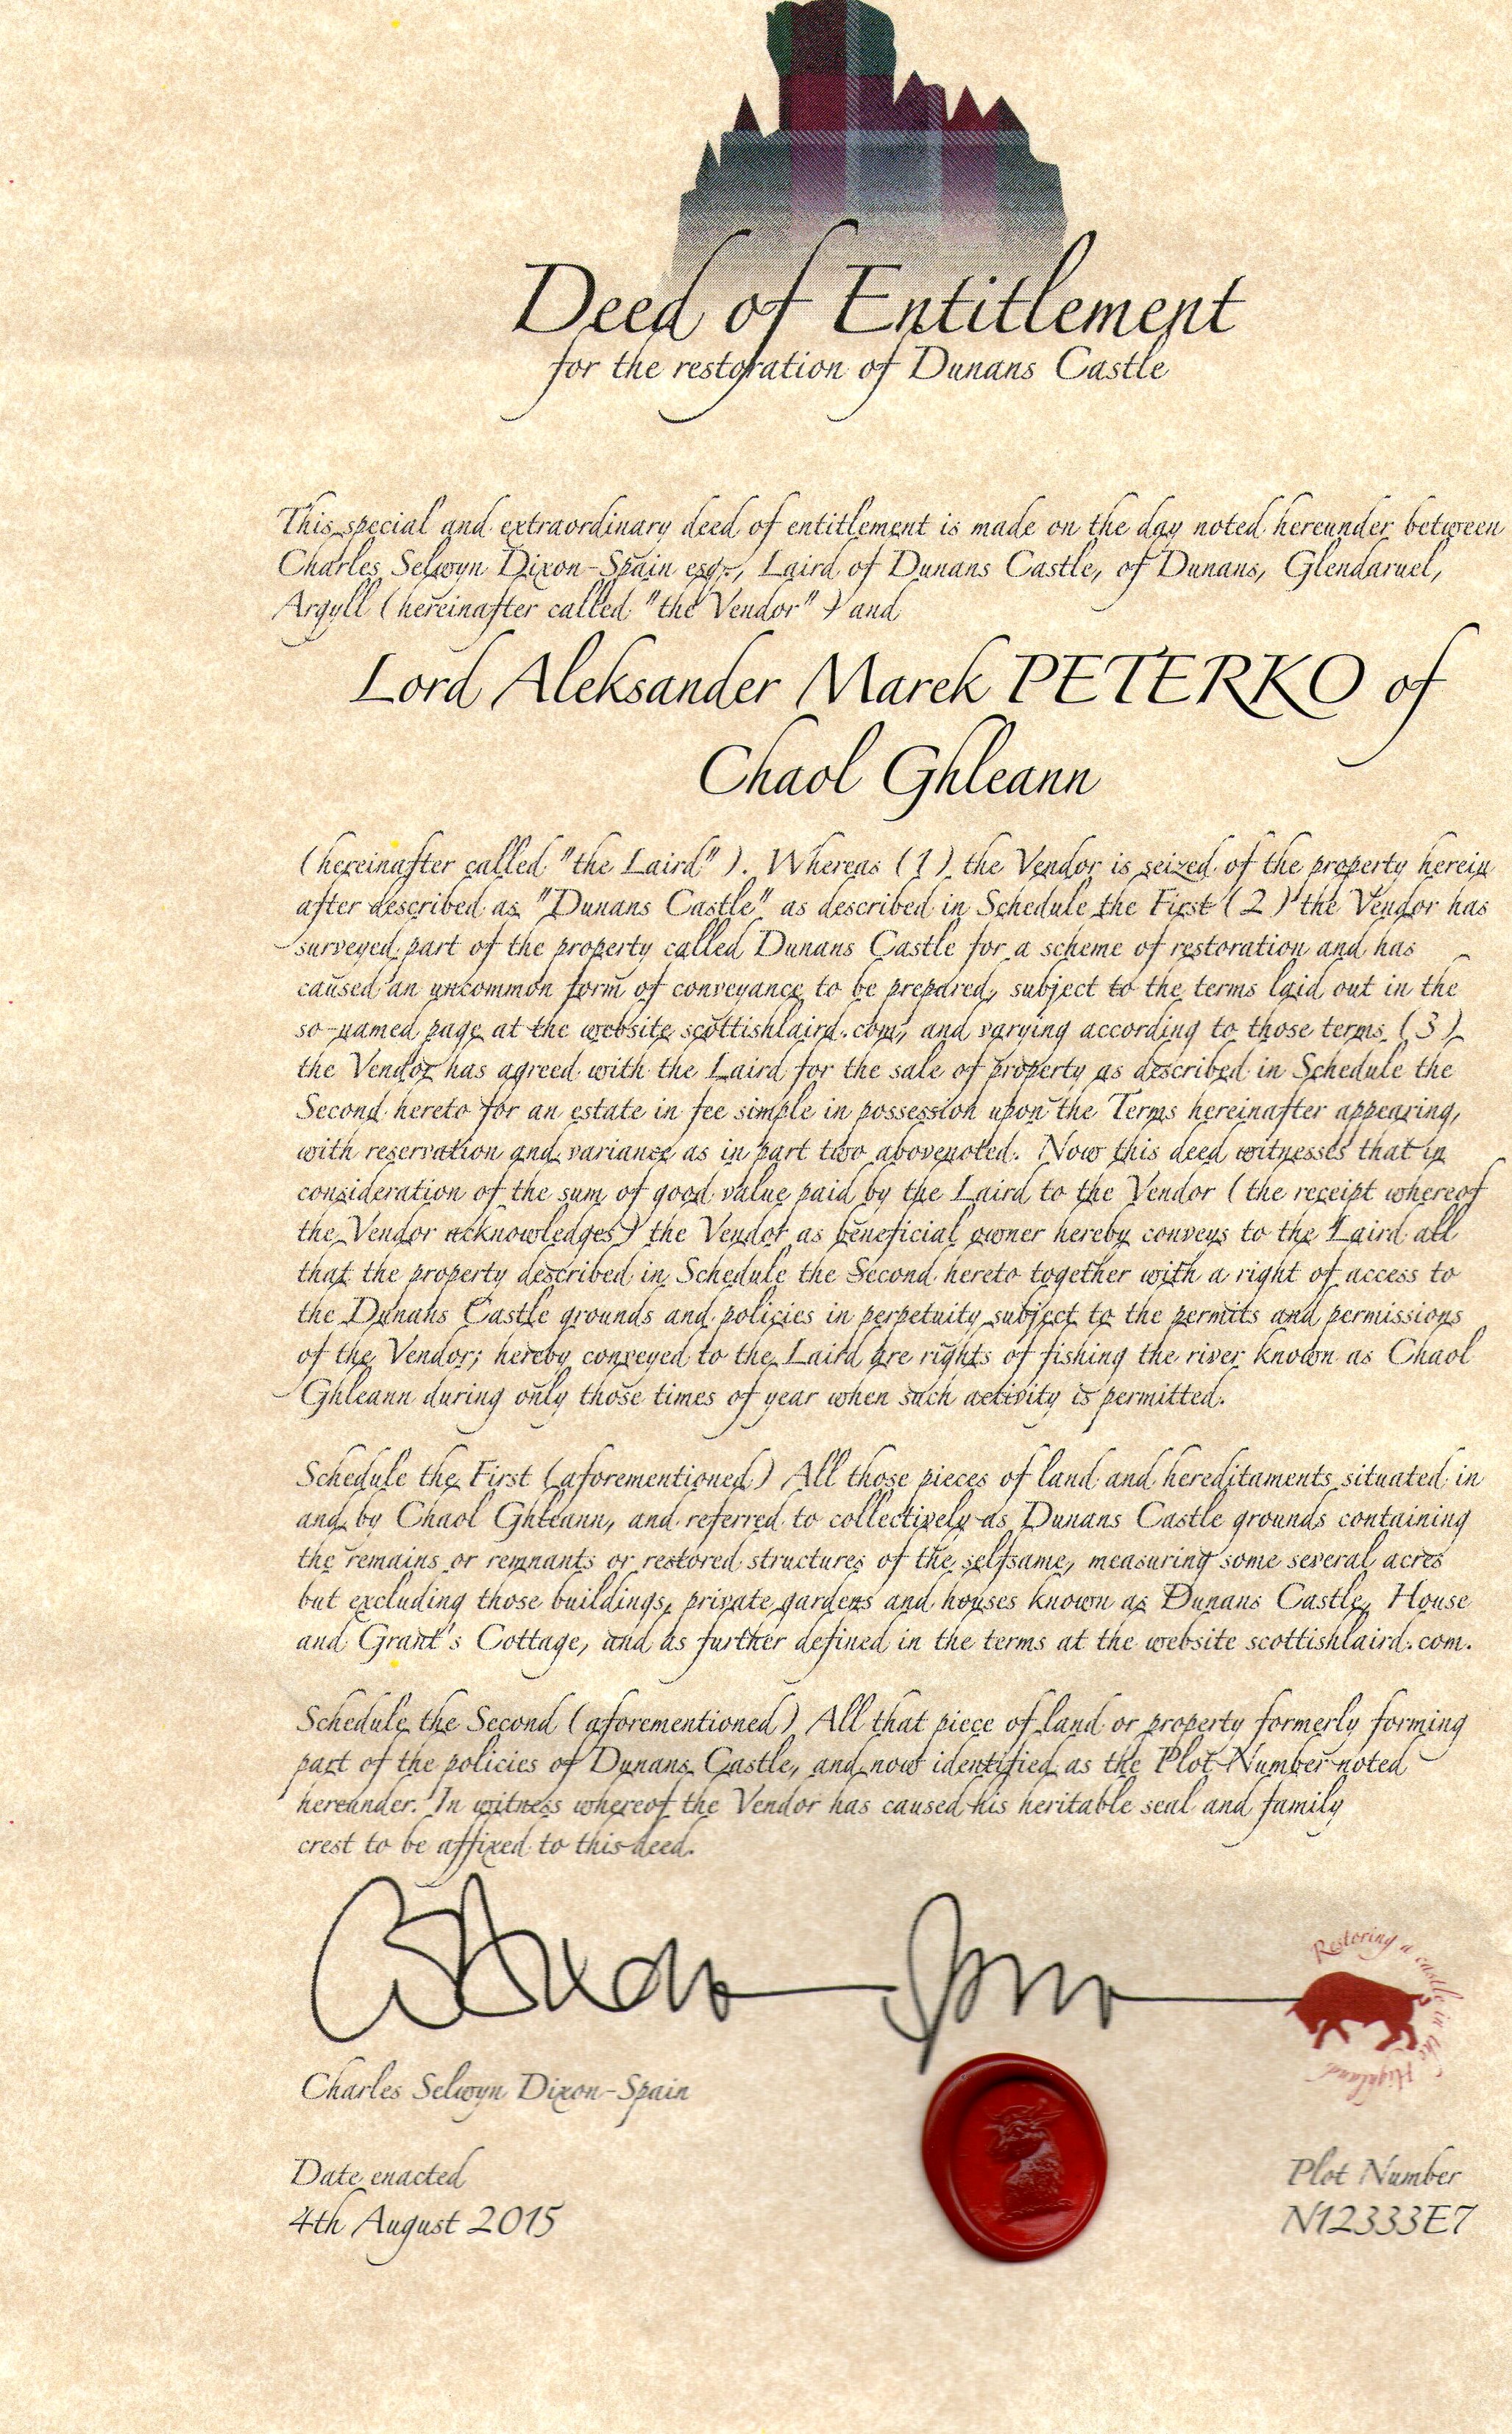 Deed of Entitlement
for the restoration of Dunans Castle
This special and extraordinary deed of entitlement is made on the day noted hereunder between
Charles Selwyn Dixon-Spain esq., Laird of Dunans Castle, of Dunans, Glendaruel,
Argyll (hereinafter called "the Vendor") and
Lord Aleksander Marek PETERKO of
Chaol Ghleann
(hereinafter called "the Laird"). Whereas (1) the Vendor is seized of the property herein
after described as "Dunans Castle" as described in Schedule the First (2) the Vendor has
surveyed part of the property called Dunans Castle for a scheme of restoration and has
caused an uncommon form of conveyance to be prepared, subject to the terms laid out in the
so-named page at the website scottishlaird.com, and varying according to those terms (3)
the Vendor has agreed with the Laird for the sale of property as described in Schedule the
Second hereto for an estate in fee simple in possession upon the Terms hereinafter appearing,
with reservation and variance as in part two abovenoted. Now this deed witnesses that in
consideration of the sum of good value paid by the Laird to the Vendor (the receipt whereof
the Vendor acknowledges) the Vendor as beneficial owner hereby conveys to the Laird all
that the property described in Schedule the Second hereto together with a right of access to
the Dunans Castle grounds and policies in perpetuity subject to the permits and permissions
of the Vendor; hereby conveyed to the Laird are rights of fishing the river known as Chaol
Ghleann during only those times of year when such activity is permitted.
Schedule the First (aforementioned) All those pieces of land and hereditaments situated in
and by Chaol Ghleann, and referred to collectively as Dunans Castle grounds containing
the remains or remnants or restored structures of the selfsame, measuring some several acres
but excluding those buildings, private gardens and houses known as Dunans Castle, House
and Grant's Cottage, and as further defined in the terms at the website scottishlaird.com.
Schedule the Second (aforementioned) All that piece of land or property formerly forming
part of the policies of Dunans Castle, and now identified as the Plot Number noted
hereunder. In witness whereof the Vendor has caused his heritable seal and family
crest to be affixed to this deed.
Restoring a castle in the Highland
Charles Selwyn Dixon-Spain
Date enacted
4th August 2015
Plot Number
N12333E7